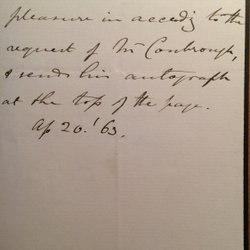 pleasure in acceding to the
request of Mr Conbrough,
& sends his autograph
at the top of the page.
Ap 20. '63.